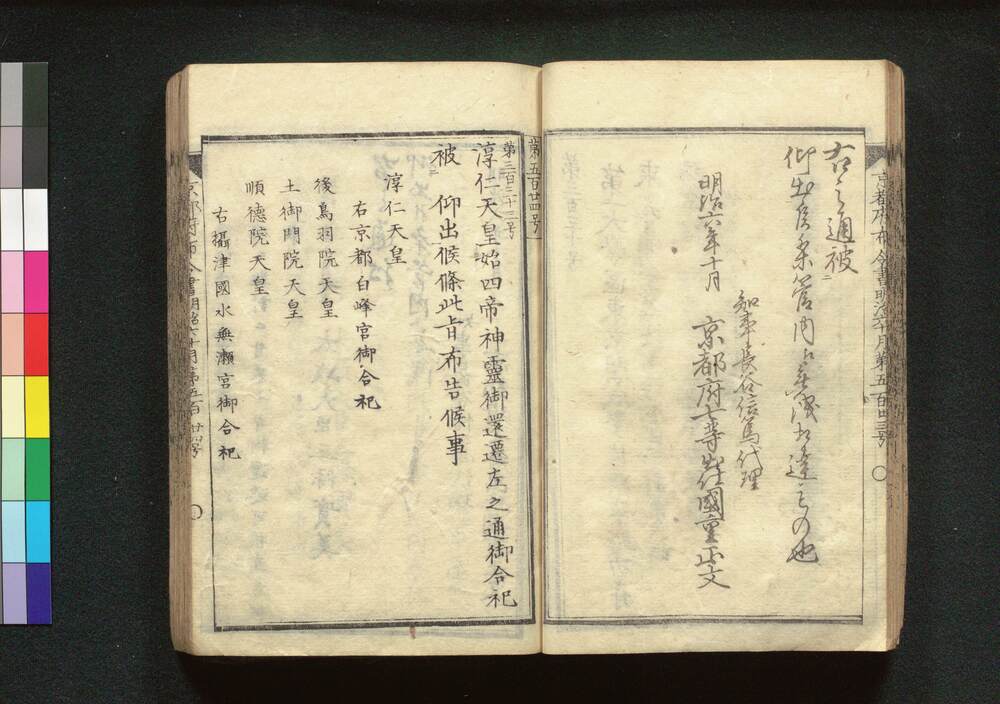 京都府布令書明治六年十月第五百廿三号
右之通被
仰出候条管内無洩相達るもの也
明治六年十月
知事長谷信篤代理
京都府七等出仕國重正文
第五百廿四号
第三百三十三号
淳仁天皇始四帝神靈御還遷左之通御合祀
被 仰出候條此旨布告候事
淳仁天皇
右京都白峰宮御合祀
後鳥羽院天皇
土御門院天皇
順德院天皇
右攝津國水無瀬宮御合祀
京都府布令書明治六年十月第五百廿四号